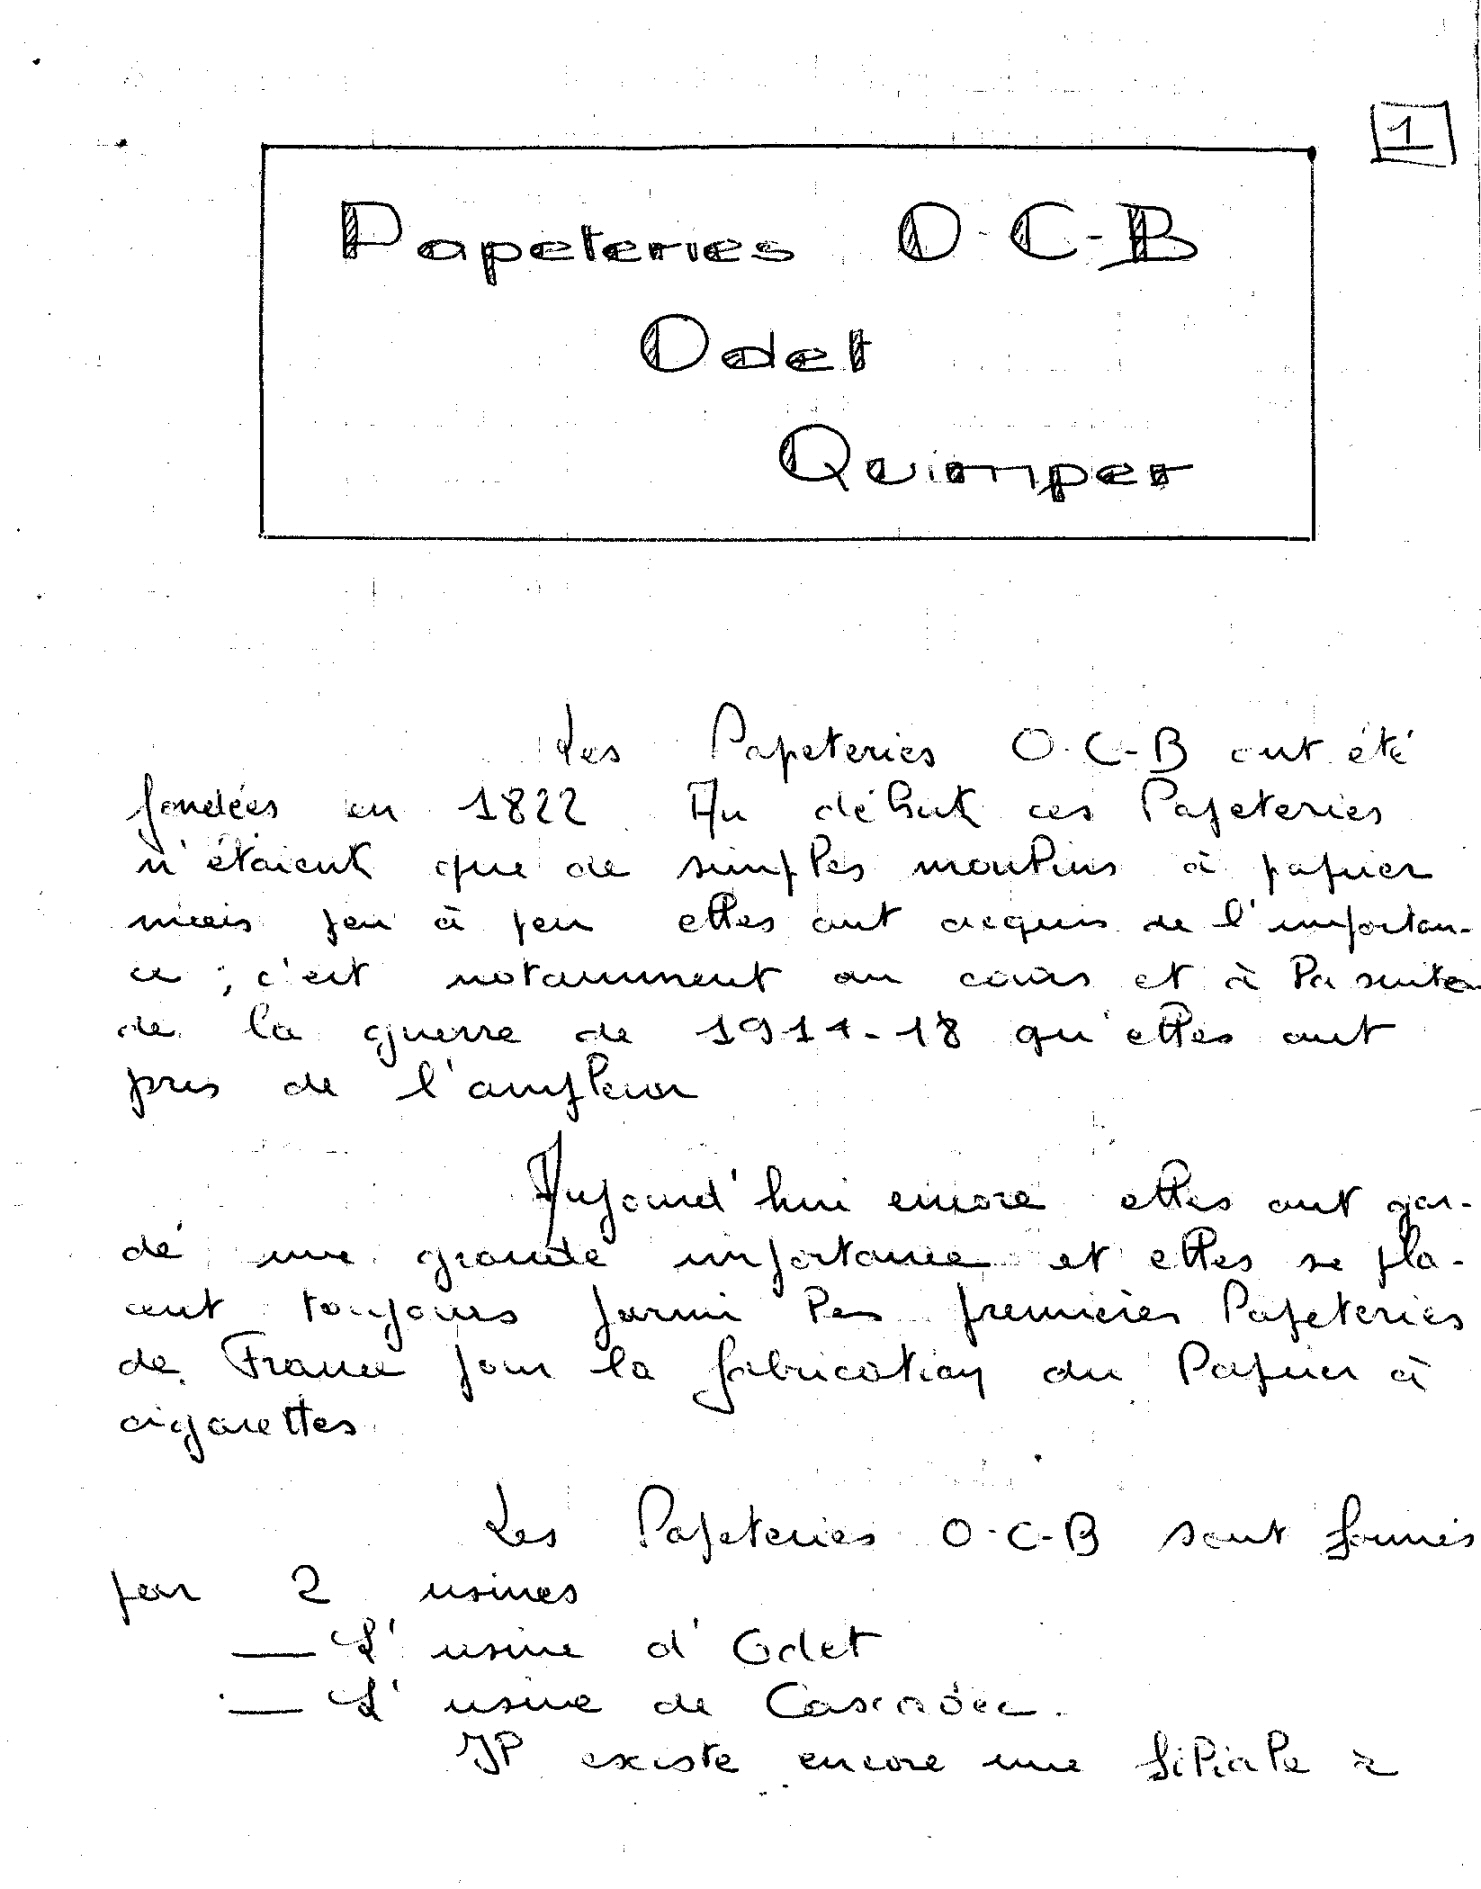 1
Papeteries O-C-B
Odet
Quimper
Les Papeteries O-C-B ont été
fondées en 1822. Au début ces Papeteries
n'étaient que de simples moulins à papier
mais peu à peu elles ont acquis de l'importan-
ce ; c'est notamment au cours et à la suite
de la guerre de 1914-18 qu'elles ont
pris de l'ampleur
Aujourd'hui encore elles ont gar-
dé une grande importance et elles se pla-
cent toujours parmi les premières Papeteries
de France pour la fabrication du Papier à
cigarettes
Les Papeteries O-C-B sont formés
par 2 usines
— L'usine d'Odet
— L'usine de Cascadec.
Il existe encore une filiale à